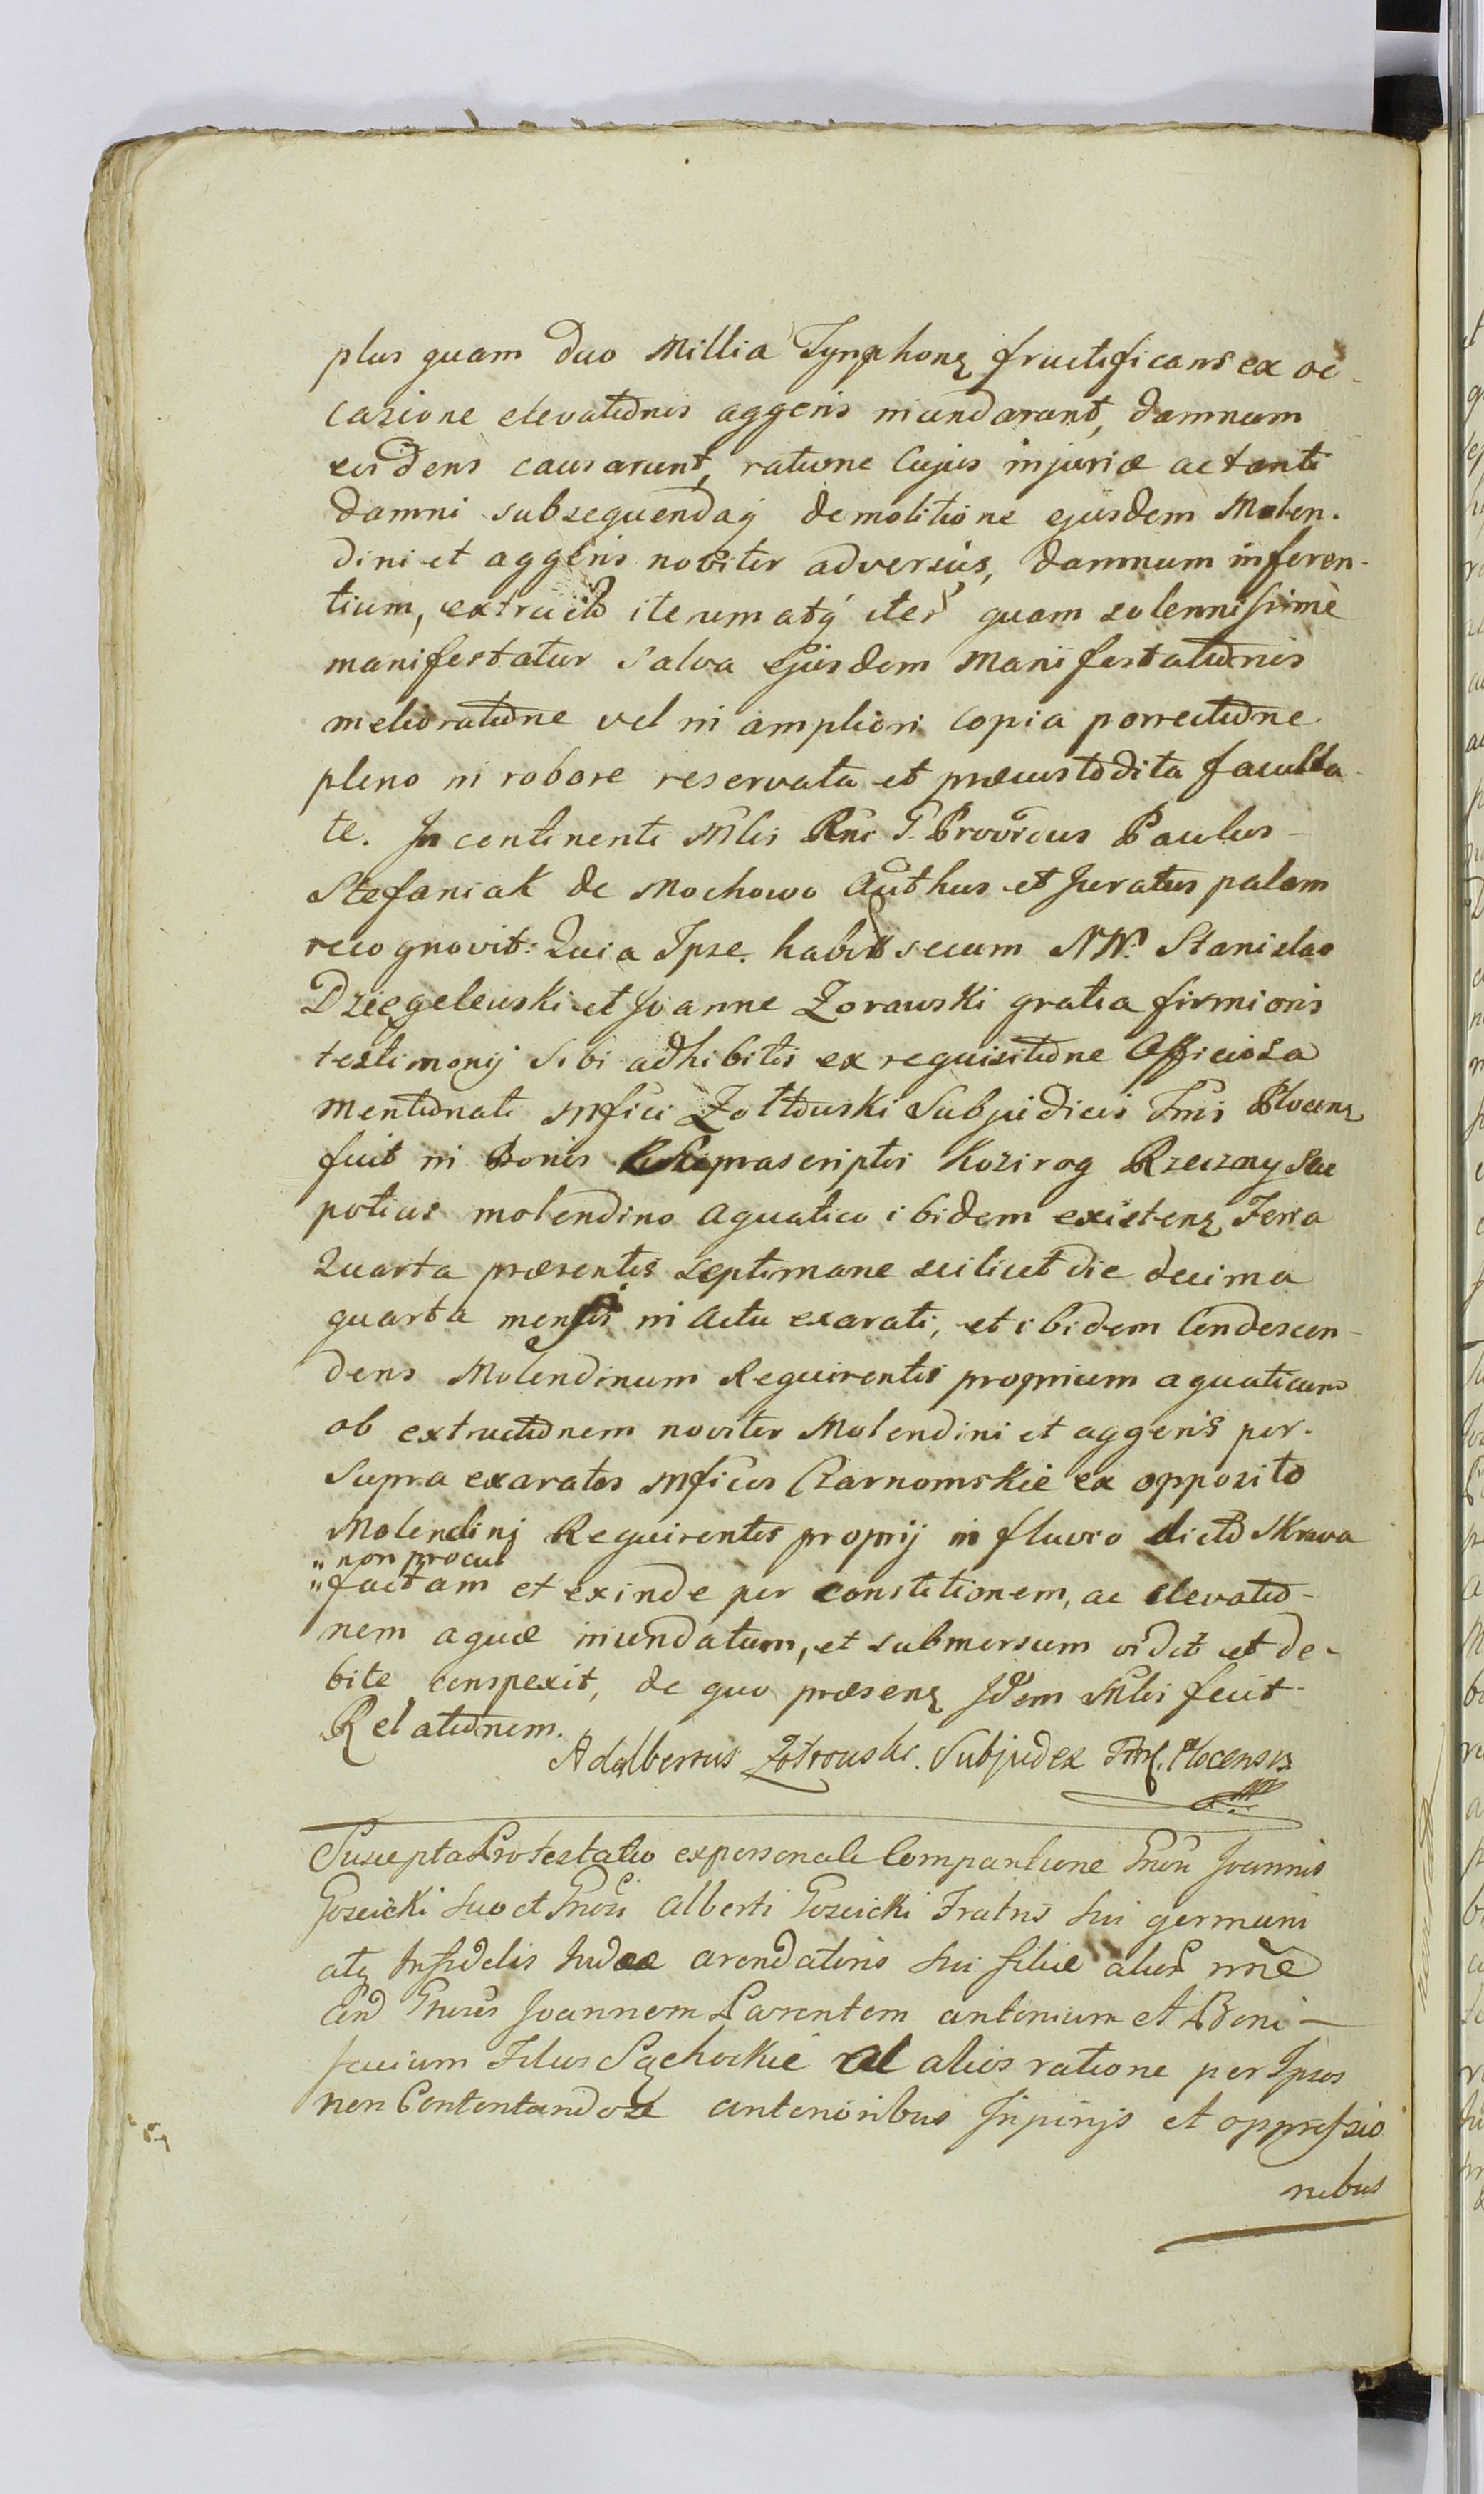 plus quam duo Millia Tynphonꝝ fructificans ex oc-
casione elevationis aggeris inundarunt, damnum
eisdens causarunt, ratione Cujus injuriæ ac tanti
damni subsequendaq́ demolitione ejusdem Molen-
dini et aggeris noviter adversus, damnum inferen-
tium, extructo iterum atq́ iter quam solennissimè
manifestatur Salva Ejusdem Manifestationis
melioratione vel in ampliori Copia porrectione
pleno in robore reservata et præcustodita faculta-
te. In continenti Mlis Rni G. Providus Paulus
Stefaniak de Mochowo Authus et Juratus palam
recognovit: Quia Ipse habit secum NN. Stanislao
Dzięgelewski et Joanne Zorawski gratia firmioris
testimonij Sibi adhibitis ex requisitione Officiosa
mentionati Mfici Zołtowski Subjudicis Tris Plocenꝫ
fuit in Bonis præscriptis Kozirog Rzeczny seu
potius molendino Aquatico ibidem existenꝫ Feria
Quarta præsentis Septimane scilicet die decima
quarta mensis in Actu exarati, et ibidem Condescen-
dens Molendinum Requirentis proprium aquaticum
ob extructionem noviter Molendini et aggeris per
Supra exaratos Mficos Czarnomskie ex opposito
Molendinj Requirentis proprij in fluvio dicto Skrwa
"non procul
"factam et exinde per constitionem, ac elevatio-
nem aquæ inundatum, et submersum vidit et de-
bite conspexit, de quo præsenꝫ Idem Mlis fecit
Relationem.
Adalbertus Zołtowski Subjudex Plocensis
Suscepta Protestatio ex personali Comparitione Gnosi Joannis
Gozicki suo et Gnosi Alberti Gozicki Fratris sui germani
atꝫ Infidelis Judææ arendatoris sui filiæ nne
Cnd Gnosos Joannem Parentem Antonium et Boni-
facium Filios Sąchockie et alios ratione per Ipsos
non Contentando anterioribus Injurijs et oppressio
nibus